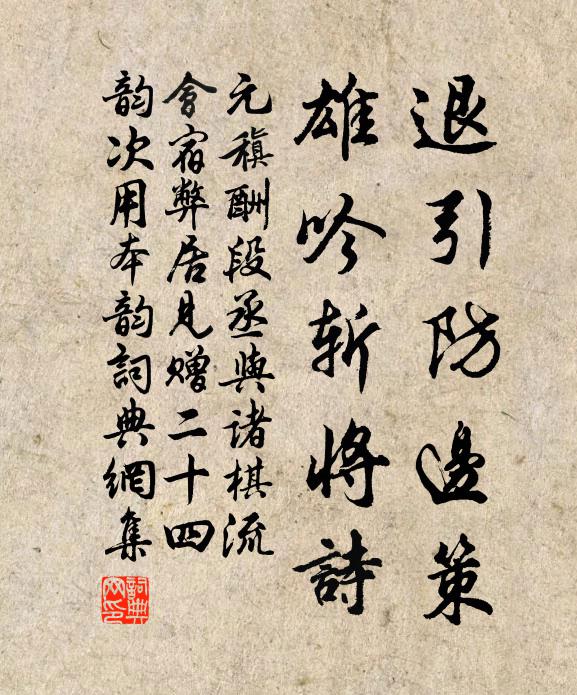 退引防邊策
雄吟斬將詩
元稹酬段丞與諸棋流
會宿弊居見贈二十四
韵次用本韵詞典網集